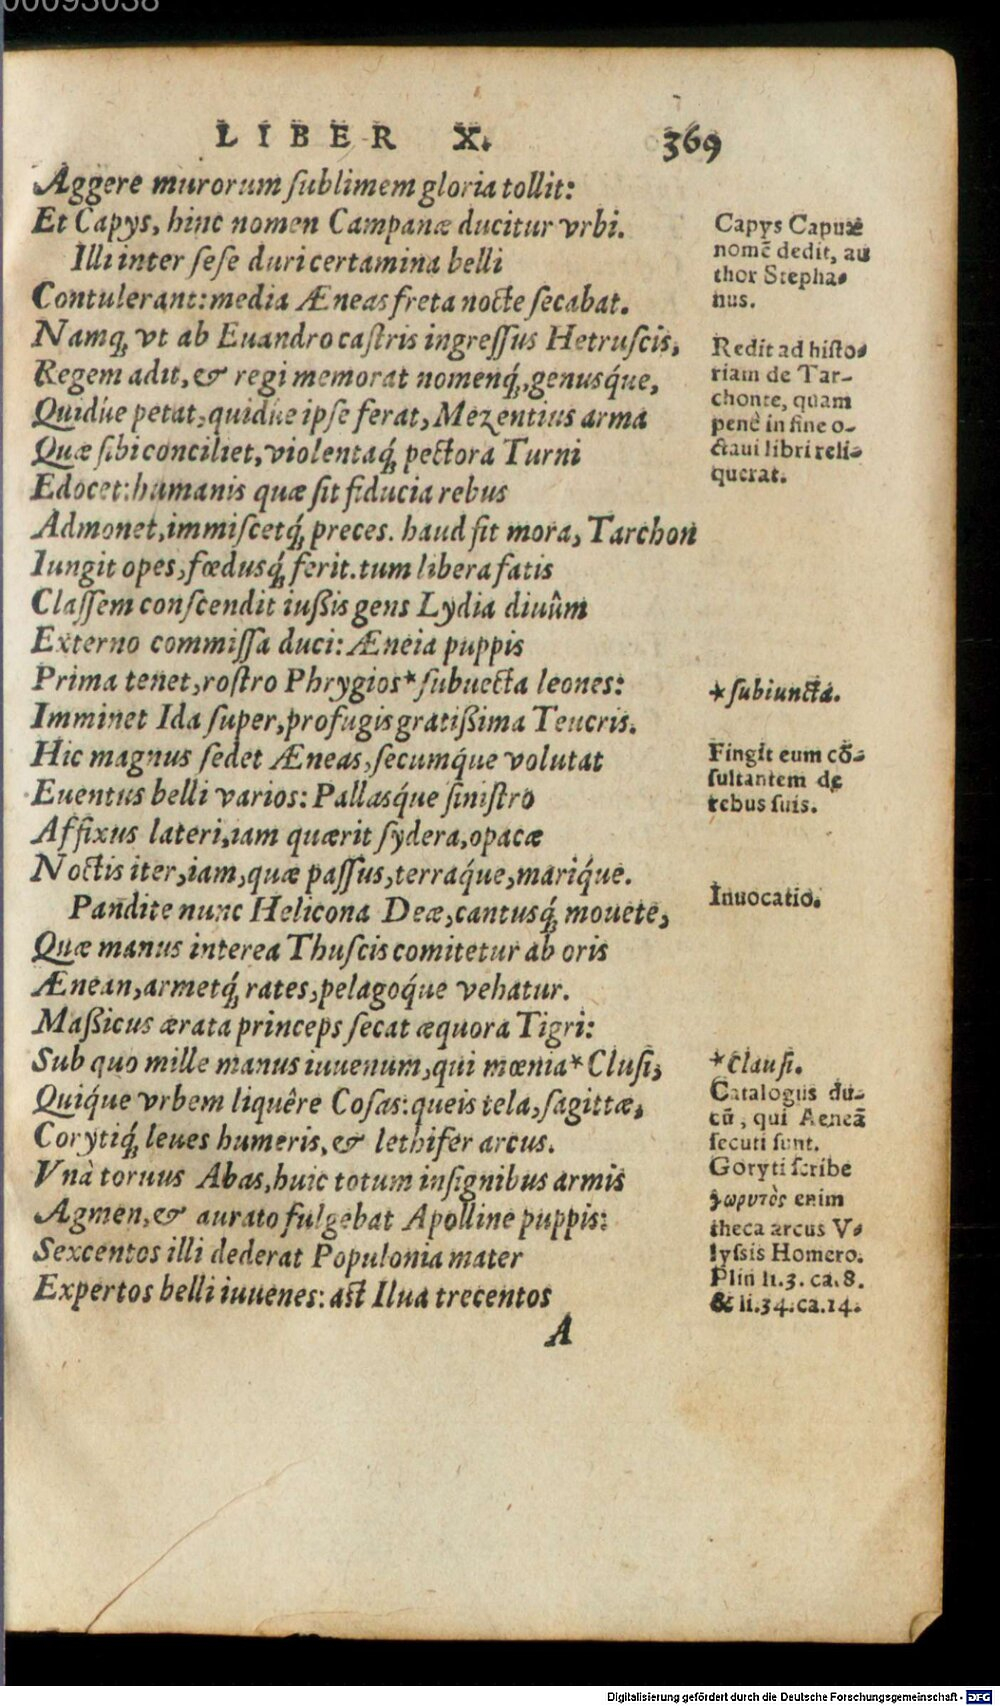 00093038
LIBER X. 369
Aggere murorum sublimem gloria tollit:
Et Capys, hinc nomen Campanæ ducitur vrbi.
Illi inter sese duri certamina belli
Contulerant: media Æneas freta nocte secabat.
Namq; vt ab Euandro castris ingressus Hetruscis,
Regem adit, & regi memorat nomenq́;, genusq́ue,
Quidúe petat, quidúe ipse ferat, Mezentius arma
Quæ sibi conciliet, violentaq́; pectora Turni
Edocet: humanis quæ sit fiducia rebus
Admonet, immiscetq́; preces. haud fit mora, Tarchon
Iungit opes, fœdusq́; ferit. tum libera fatis
Classem conscendit iußis gens Lydia diuûm
Externo commissa duci: Æneia puppis
Prima tenet, rostro Phrygios* subuecta leones:
Imminet Ida super, profugis gratißima Teucris.
Hic magnus sedet Æneas, secumq́ue volutat
Euentus belli varios: Pallasq́ue sinistro
Affixus lateri, iam quærit sydera, opacæ
Noctis iter, iam, quæ passus, terraq́ue, mariq́ue.
Pandite nunc Helicona Deæ, cantusq́; mouete,
Quæ manus interea Thuscis comitetur ab oris
Ænean, armetq́; rates, pelagoq́ue vehatur.
Maßicus ærata princeps secat æquora Tigri:
Sub quo mille manus iuuenum, qui mœnia* Clusi,
Quiq́ue vrbem liquêre Cosas: queis tela, sagittæ,
Corytiq́; leues humeris, & lethifer arcus.
Vnà toruus Abas, huic totum insignibus armis
Agmen, & aurato fulgebat Apolline puppis:
Sexcentos illi dederat Populonia mater
Expertos belli iuuenes: ast Ilua trecentos
A
Capys Capuæ
nomẽ dedit, au
thor Stepha-
nus.
Redit ad histo-
riam de Tar-
chonte, quam
penè in fine o-
ctaui libri reli-
querat.
*subiuncta.
Fingit eum cõ-
sultantem de
rebus suis.
Inuocatio.
*Clausi.
Catalogus du-
cũ, qui Aeneã
secuti sunt.
Goryti scribe
γωρυτὸς enim
theca arcus V-
lyssis Homero.
Plin li.3. ca.8.
& li.34.ca.14.
Digitalisierung gefördert durch die Deutsche Forschungsgemeinschaft - DFG